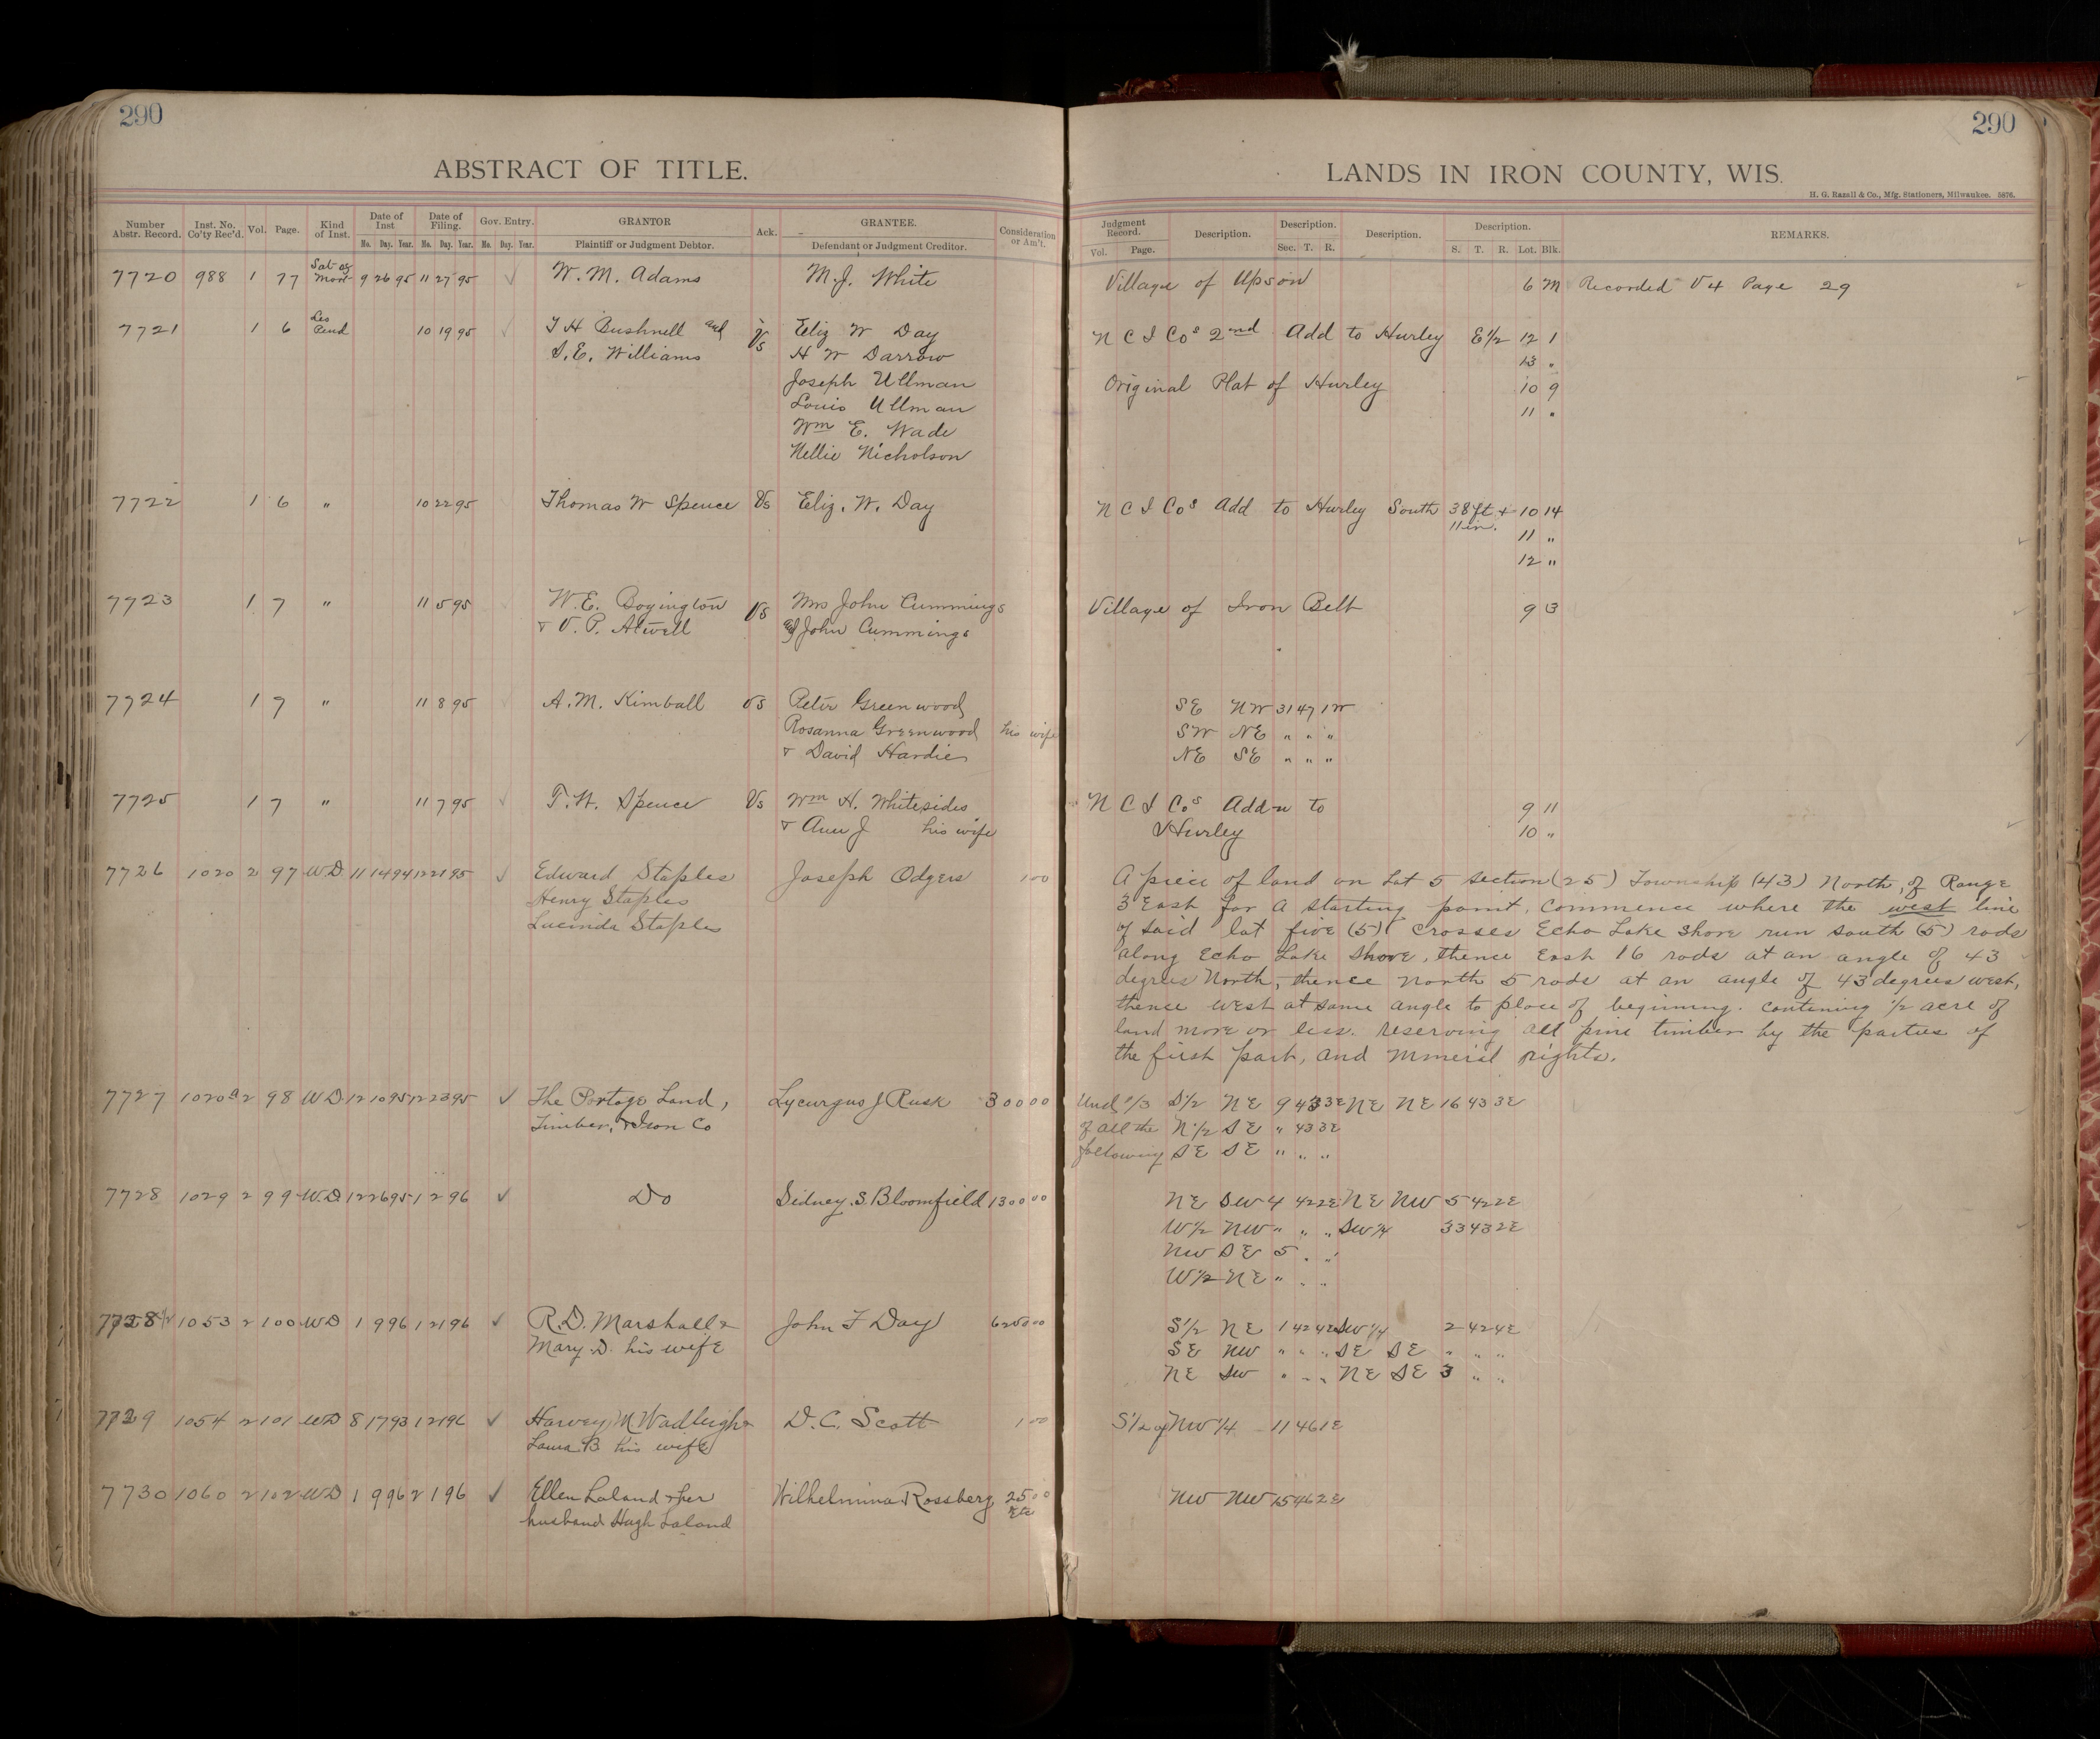 290
290
ABSTRACT OF TITLE.
LANDS IN IRON COUNTY, WIS.
H. G. Razall & Co., Mfg. Stationers, Milwaukee. 5876.
Number Abstr. Record. Inst. No. Co'ty Rec'd. Vol. Page. Kind of Inst. Date of Inst Mo. Day. Year. Date of Filing. Mo. Day. Year. Gov. Entry. Mo. Day. Year. GRANTOR Plaintiff or Judgment Debtor. Ack. GRANTEE. Defendant or Judgment Creditor. Consideration or Am't.
Judgment Record. Vol. Page. Description. Description. Sec. T. R. Description. Description. S. T. R. Lot. Blk. REMARKS.
7720 988 1 77 Sat of Mort 9 26 95 11 27 95 W. M. Adams M.J. White Village of Upson 6 M Recorded V4 Page 29
7721 1 6 Les Pend 10 19 95 T H Bushnell and Vs Eliz W Day N C I Cos 2nd Add to Hurley E1/2 12 1
S. E. Williams H W Darrow 13 "
Joseph Ullman Original Plat of Hurley 10 9
Louis Ullman 11 "
Wm E. Wade
Nellie Nicholson
7722 1 6 " 10 22 95 Thomas W Spence Vs Eliz. W. Day N C I Cos Add to Hurley South 38ft + 10 14
11in. 11 "
12 "
7723 1 7 " 11 5 95 W. E. Boyington Vs Mrs John Cummings Village of Iron Belt 9 3
& V. P. Atwell and John Cummings
7724 1 7 " 11 8 95 A. M. Kimball Vs Peter Greenwood SE NW 31 47 1W
Rosanna Greenwood his wife SW NE " " "
& David Hardie NE SE " " "
7725 1 7 " 11 7 95 T. W. Spence Vs Wm H. Whitesides N C I Cos Add-n to 9 11
& Ann J his wife Hurley 10 "
7726 1020 2 97 W.D. 11 14 94 12 21 95 Edward Staples Joseph Odgers 1 00 A piece of land on Lot 5 section (25) Township (43) North, of Range
Henry Staples 3 East for a starting point. Commence where the west line
Lucinda Staples of said lot five (5) crosses Echo Lake shore run south (5) rods
along Echo Lake shore, thence East 16 rods at an angle of 43
degrees North, thence north 5 rods at an angle of 43 degrees west,
thence west at same angle to place of beginning. contening 1/2 acre of
land more or less. reserving all pine timber by the parties of
the first part, and mineral rights.
7727 1020a 2 98 W.D. 12 10 95 12 23 95 The Portage Land, Lycurgus J Rusk 300 00 Und 1/3 S1/2 NE 9 43 3E NE NE 16 43 3E
Timber, & Iron Co of all the N1/2 SE " 43 3E
following SE SE " " "
7728 1029 2 99 W.D. 12 26 95 1 2 96 Do Sidney S. Bloomfield 1300 00 NE SW 4 42 2E NE NW 5 42 2E
W1/2 NW " " " SW1/4 33 43 2E
NW SE 5 " "
W1/2 NE " " "
7728 1/2 1053 2 100 WD 1 9 96 1 21 96 R. D. Marshall & John F Day 625 00 S1/2 NE 1 42 4E SW1/4 2 42 4E
Mary D. his wife SE NW " " " SE SE " " "
NE SW " " " NE SE 3 " "
7729 1054 2 101 WD 8 17 93 1 21 96 Harvey M Wadleigh & D. C. Scott 1 00 S1/2 of NW1/4 11 46 1E
Laura B his wife
7730 1060 2 102 WD 1 9 96 2 1 96 Ellen Laland & her Wilhelmina Rossberg 25 00 NW NW 15 46 2E
husband Hugh Laland Etc